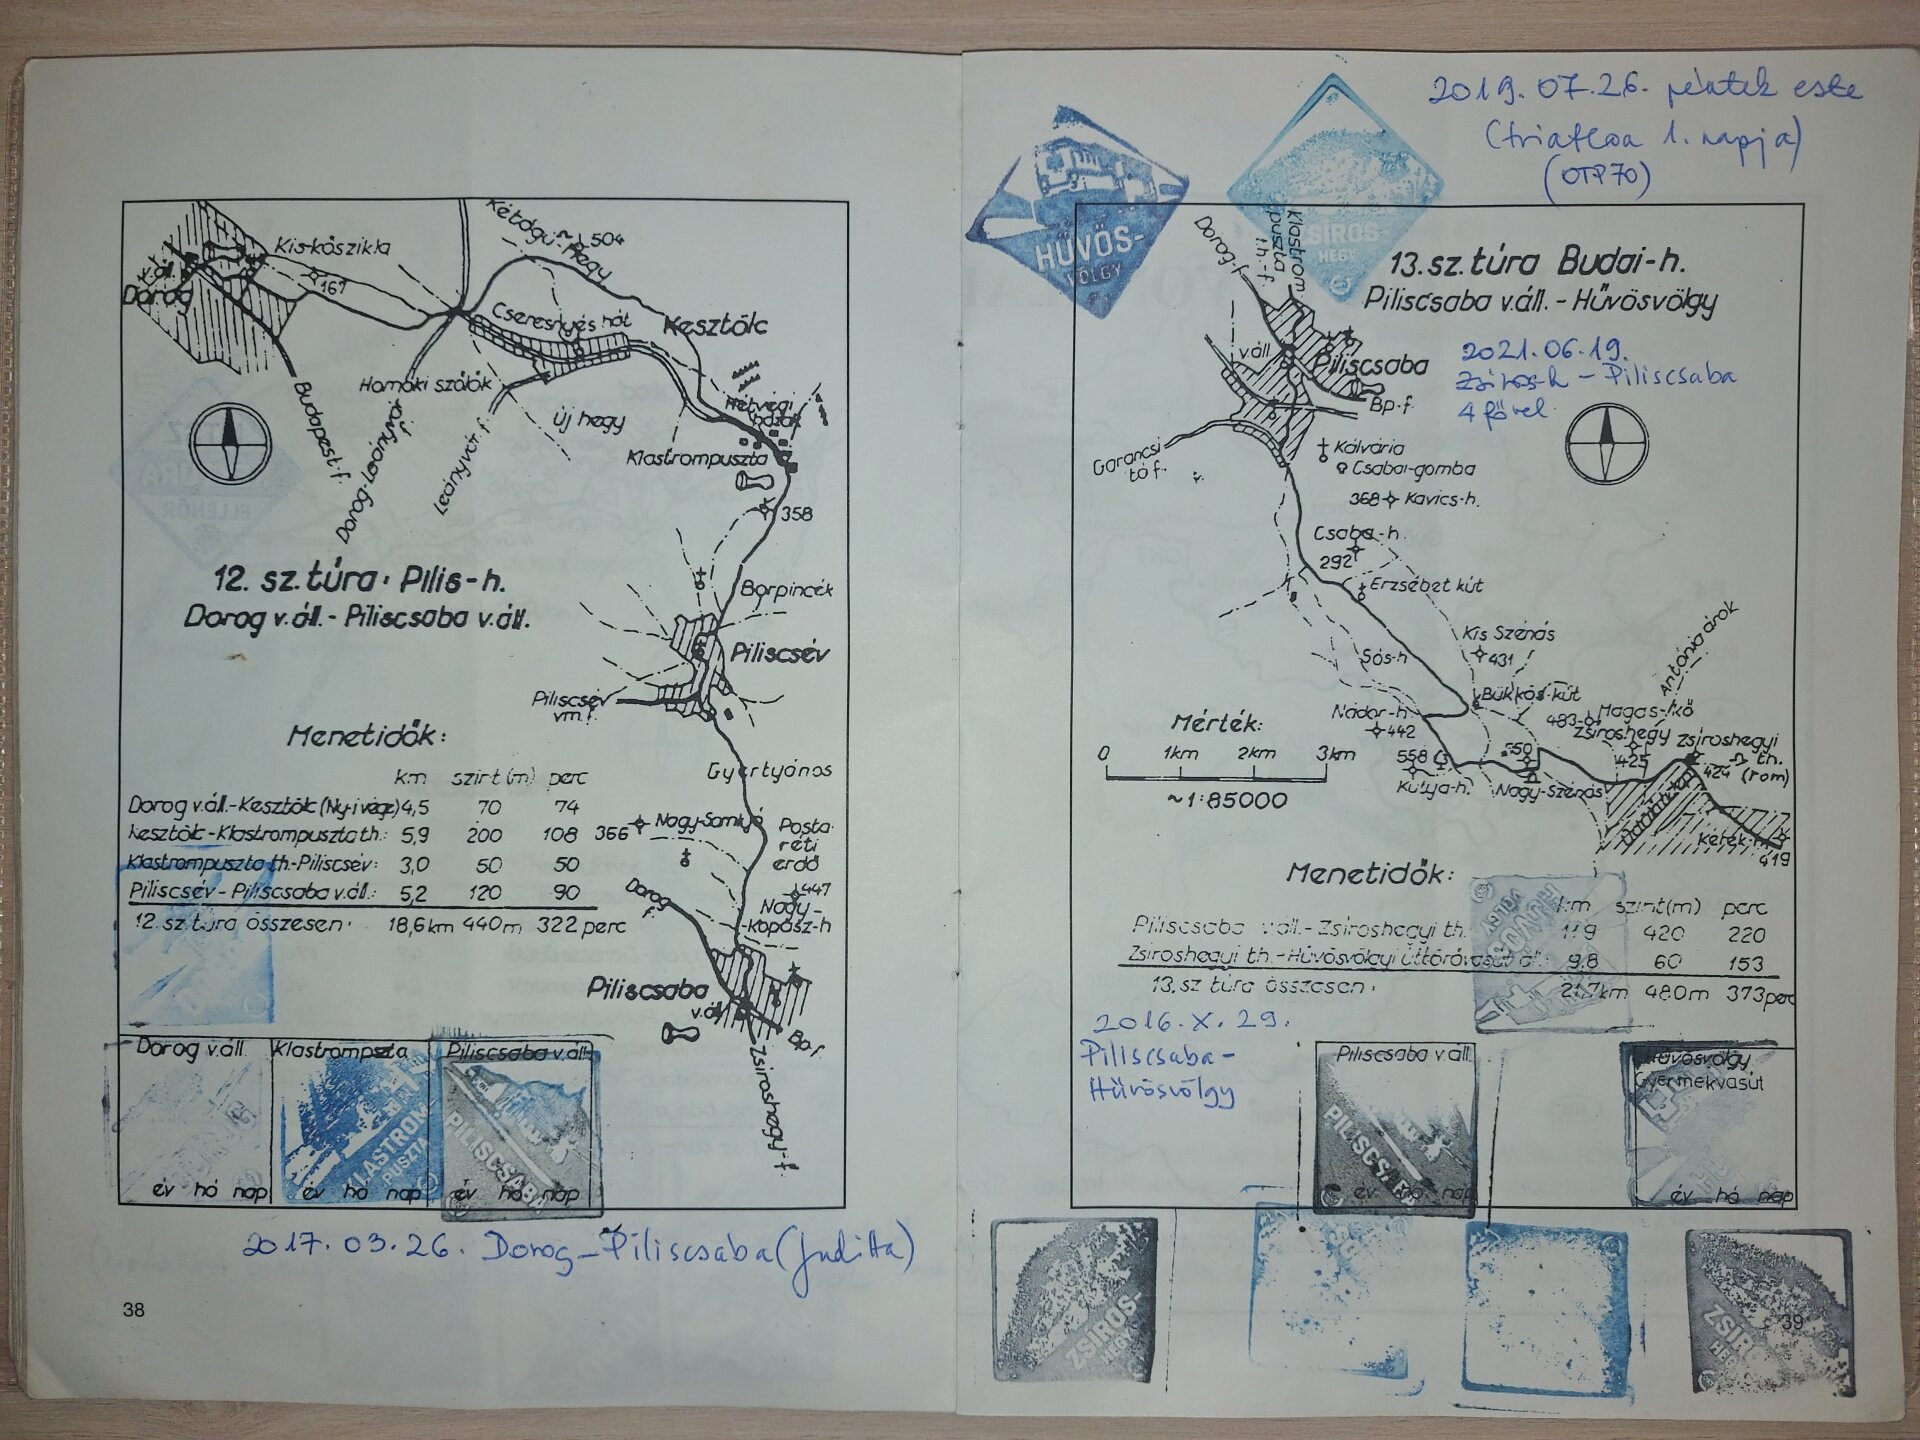 Kis-kőszikla
167
504
Dorog
v.áll.
Cseresnyés hát
Kesztölc
Budapest f.
Hamoki szőlők
Dorog-Leányvár f.
Leányvár f.
Új hegy
Hétvégi házak
Klastrompuszta
358
12. sz. túra: Pilis-h.
Dorog v.áll. - Piliscsaba v.áll.
Borpincék
Piliscsév
Piliscsév
vm.f.
Gyertyános
Menetidők:
km szint(m) perc
Dorog v.áll.-Kesztölc (Ny-i vége) 4,5 70 74
Kesztölc-Klastrompuszta th.: 5,9 200 108
Klastrompuszta th.-Piliscsév: 3,0 50 50
Piliscsév - Piliscsaba v.áll.: 5,2 120 90
12. sz túra összesen: 18,6 km 440m 322 perc
366 Nagy-Somlyó
Posta-
réti
erdő
447
Nagy-
kopasz-h
Dorog
f.
Piliscsaba
v.áll
Bp.f.
Zsiroshegy-f.
Dorog v.áll.
Klastrompszta
Piliscsaba v.áll.
KLASTROM
PUSZTA
PILISCSABA
év hó nap
év hó nap
év hó nap
2017.03.26. Dorog-Piliscsaba (Juditta)
38
2019.07.26. péntek este
(triatlon 1. napja)
(OTP70)
HŰVÖS-
VÖLGY
ZSIROS
HEGY
Dorog-f.
Klastrom
puszta
t.h.-f.
13. sz. túra Budai-h.
Piliscsaba v.áll. - Hűvösvölgy
2021.06.19.
Zsiros-h - Piliscsaba
4 fővel
v.áll.
Piliscsaba
Bp-f.
Garancsi
tó f.
Kálvária
Csabai-gomba
368 Kavics-h.
Csaba-h.
292
Erzsébet kút
Kis Szénás
431
Antónia árok
Sós-h
Bükkös-kút
Nádor-h.
442
483
Magas-kő
Zsiroshegy
425
Zsiroshegyi
th.
(rom)
424
558
Kutya-h.
550
Nagy-Szénás
Kerek-h
419
Mérték:
0 1km 2km 3km
~1:85000
Menetidők:
km szint(m) perc
Piliscsaba váll.- Zsiroshegyi th. 11,9 420 220
Zsiroshegyi th.-Hűvösvölgyi úttörővasút áll.: 9,8 60 153
13. sz túra összesen: 21,7km 480m 373perc
2016.X.29.
Piliscsaba-
Hűvösvölgy
Piliscsaba v.áll.
Hűvösvölgy
Gyermekvasút
PILISCSABA
év hó nap
év hó nap
ZSIROS-
HEGY
ZSIROS
39